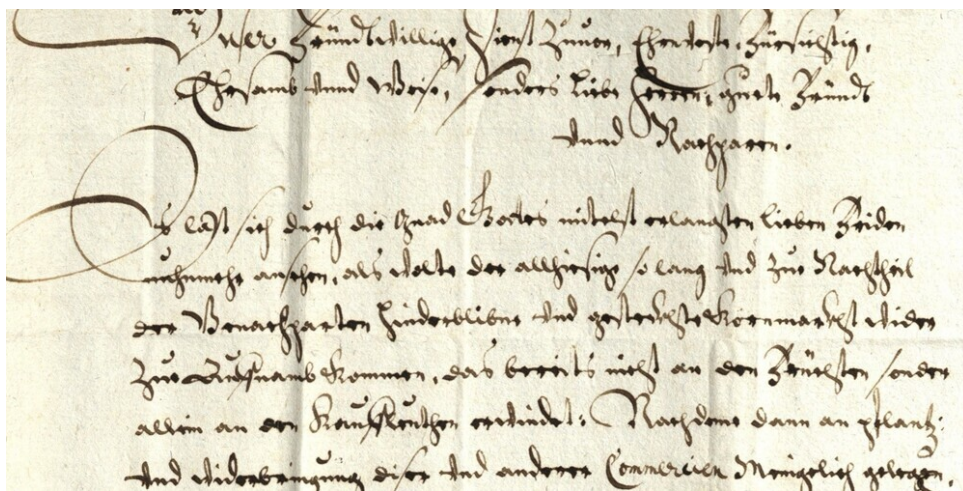 Unser Fründtwillig Dienst Zuuor, Ehrnveste, Fürsichtig,
Ehrsamb vnnd Weise, sonders liebe Herren, guete Fründt
vnnd Nachparen.
Es laßt sich durch die Gnad Gottes mittelst erlangten lieben Friden
nuhnmehr ansehen, als wolte der allhiesige so lang vnd zue Nachtheil
der Benachparten hinderblibne vnd gesteckhte Kornmarckht wider
zue Aufnamb kommen, das bereits nicht an den Früchten sonder
allein an den Kauffleuthen erwindet: Nachdeme dann an pflantz:
vnd widerbringung diser vnd anderer Commercien Menigelich gelegen,